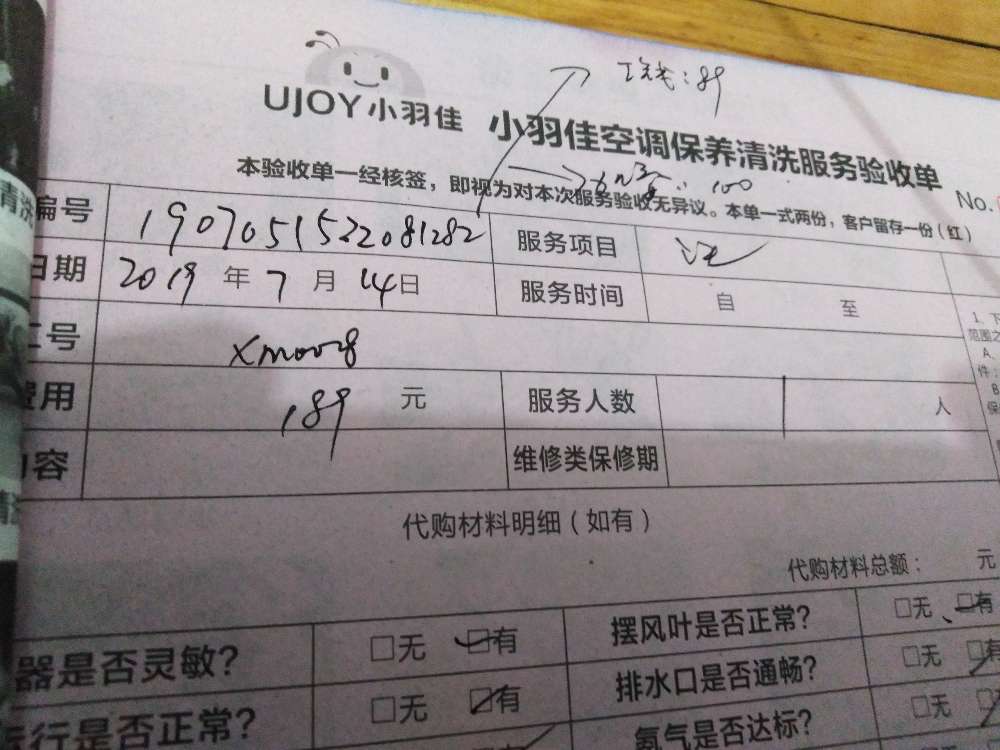 :89
UJOY小羽佳 小羽佳空调保养清洗服务验收单
100
本验收单一经核签，即视为对本次服务验收无异议。本单一式两份，客户留存一份(红) No.
编号 1907051522081282 服务项目
日期 2019 年 7 月 14 日 服务时间 自 至
工号 xm008
费用 189 元 服务人数 1 人
内容 维修类保修期
1、下
范围之
A、
件；
B
保
代购材料明细（如有）
代购材料总额： 元
器是否灵敏? □无 □有 摆风叶是否正常? □无 □有
运行是否正常? □无 □有 排水口是否通畅? □无 □有
氨气是否达标? □无
清洗